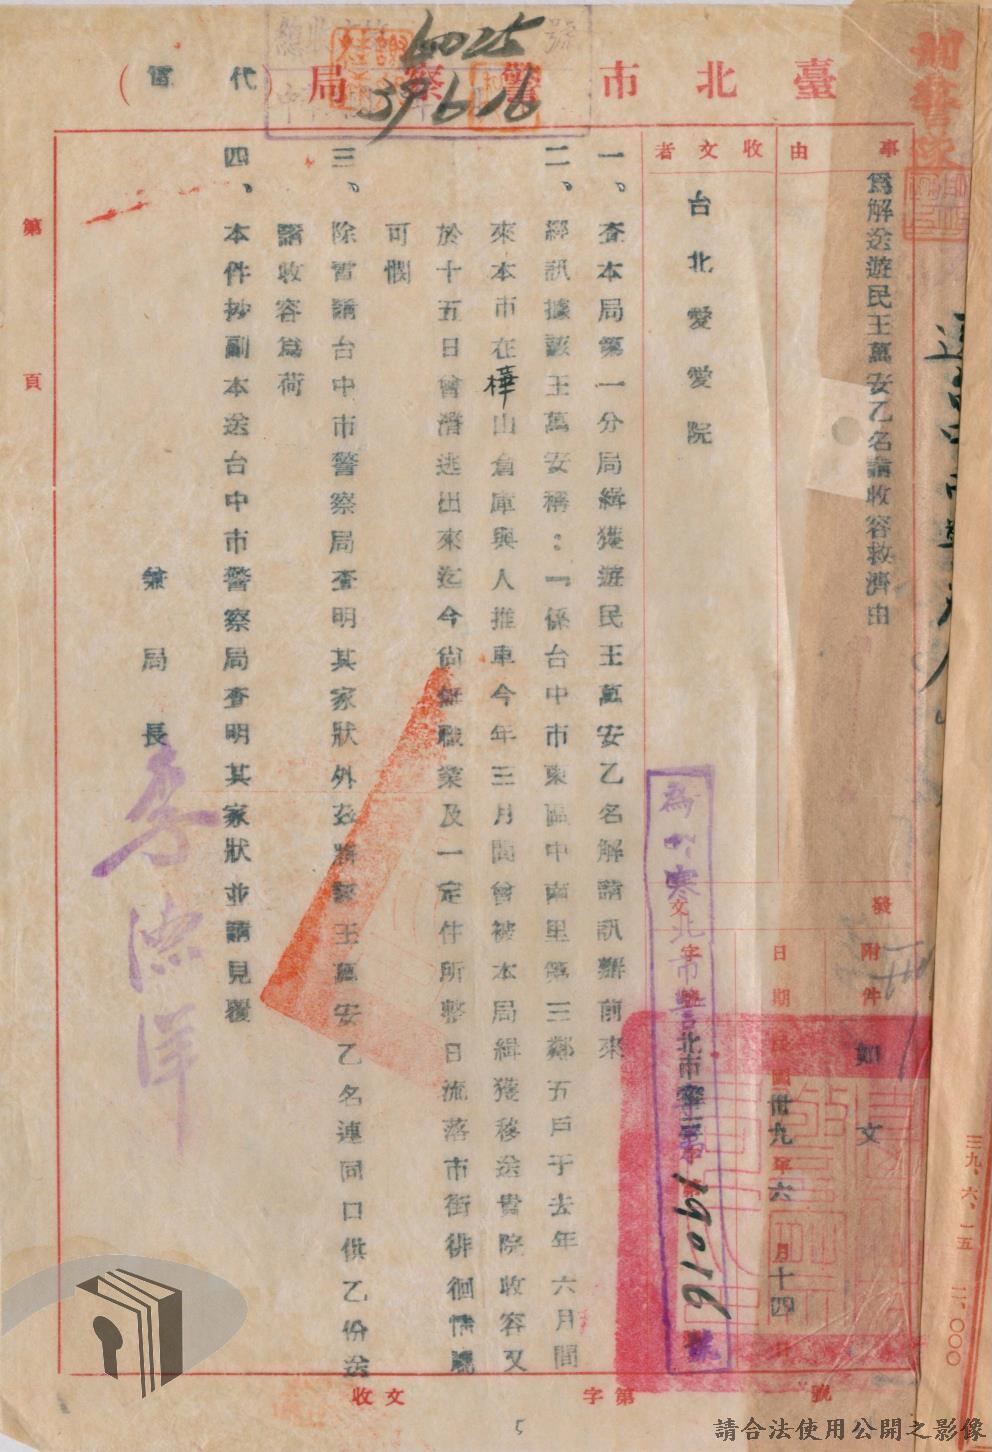 臺北市警察局（代電）
6025
39 6 16
事由
為解送遊民王萬安乙名請收容救濟由
收文者
台北愛愛院
附件
如文
發文
日期
民國卅九年六月十四日
字號
19016號
一、查本局第一分局緝獲遊民王萬安乙名解請訊辦前來
二、經訊據該王萬安稱：「係台中市東區中南里第三鄰五戶于去年六月間
來本市在樺山倉庫與人推車今年三月間曾被本局緝獲移送貴院收容又
於十五日曾潛逃出來迄今尚無職業及一定住所整日流落市街徘徊情殊
可憫
三、除電請台中市警察局查明其家狀外茲將該王萬安乙名連同口供乙份送
請收容為荷
四、本件抄副本送台中市警察局查明其家狀並請見覆
兼局長
李德洋
第 頁
收文 字第 號
三九、六、一五 二、〇〇〇
請合法使用公開之影像